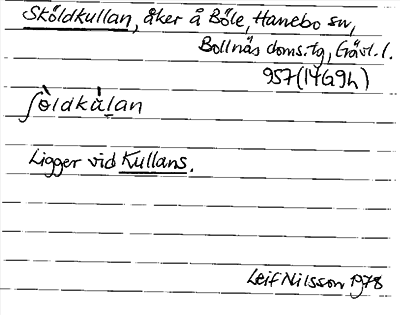 Sköldkullan, åker å Böle, Hanebo sn,
Bollnäs doms.tg, Gävl.l.
957 (14G9h)
ʃö̀ldkàl̠an
Ligger vid Kullans.
Leif Nilsson 1978